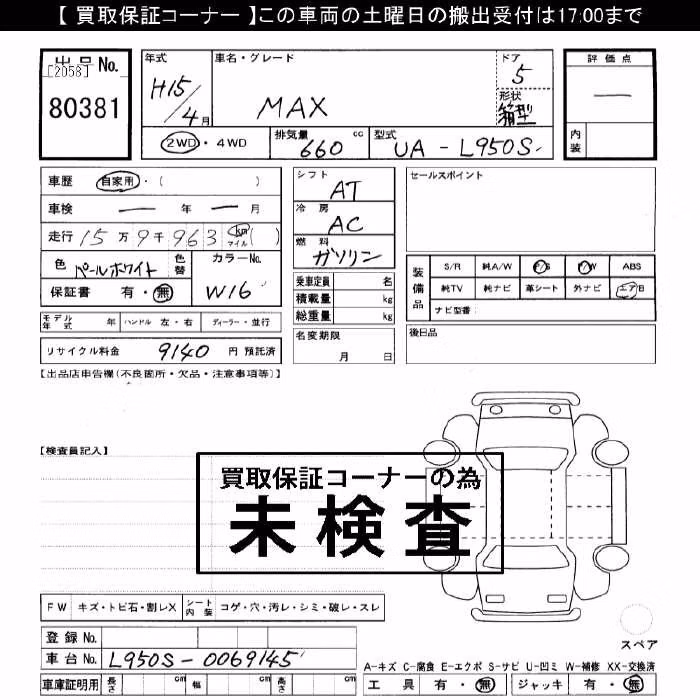 【 買取保証コーナー 】この車両の土曜日の搬出受付は17:00まで
出品 No.
[2058]
80381
年式
H15/4月
車名・グレード
MAX
ドア
5
形状
箱型
評価点
—
内装
2WD・4WD
排気量
660 cc
型式
UA - L950S
車歴 自家用・( )
車検 — 年 — 月
走行 15万9千963 km マイル ( )
色 パールホワイト
色替
カラーNo.
W16
保証書 有・無
モデル年式 年 ハンドル 左・右 ディーラー・並行
リサイクル料金 9140 円 預託済
シフト
AT
冷房
AC
燃料
ガソリン
乗車定員 名
積載量 kg
総重量 kg
名変期限
月 日
セールスポイント
装備品
S/R 純A/W P/S P/W ABS
純TV 純ナビ 革シート 外ナビ エアB
ナビ型番
後日品
【出品店申告欄(不良箇所・欠品・注意事項等)】
【検査員記入】
買取保証コーナーの為
未検査
FW キズ・トビ石・割レX シート内装 コゲ・穴・汚レ・シミ・破レ・スレ
登録 No.
車台 No. L950S-0069145
車庫証明用 長さ cm 幅 cm 高さ cm
スペア
A-キズ C-腐食 E-エクボ S-サビ U-凹ミ W-補修 XX-交換済
工具 有・無 ジャッキ 有・無